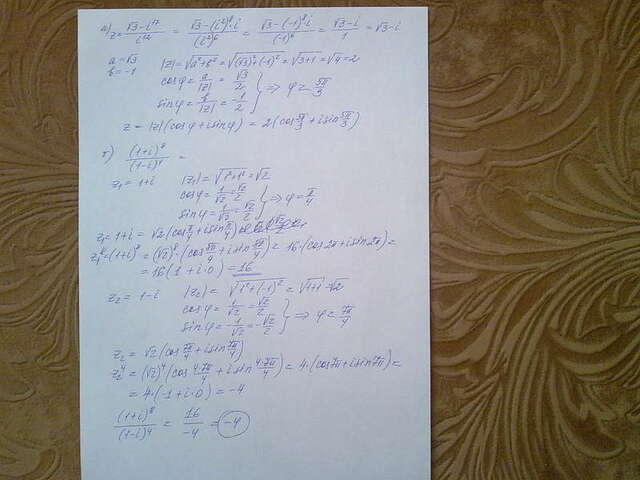 a) z = (√3 - i¹⁷)/i¹² = (√3 - (i²)⁸·i)/(i²)⁶ = (√3 - (-1)⁸·i)/(-1)⁶ = (√3 - i)/1 = √3 - i
a = √3
b = -1
|z| = √(a² + b²) = √((√3)² + (-1)²) = √(3+1) = √4 = 2
cosφ = a/|z| = √3/2
sinφ = b/|z| = -1/2
} ⇒ φ = 5π/3
z = |z|(cosφ + i sinφ) = 2(cos 5π/3 + i sin 5π/3)
т) (1+i)⁸/(1-i)⁴ =
z₁ = 1+i
|z₁| = √(1² + 1²) = √2
cosφ = 1/√2 = √2/2
sinφ = 1/√2 = √2/2
} ⇒ φ = π/4
z₁ = 1+i = √2(cos π/4 + i sin π/4)
z₁⁸ = (1+i)⁸ = (√2)⁸·(cos 8π/4 + i sin 8π/4) = 16·(cos2π + i sin2π) =
= 16(1 + i·0) = 16
z₂ = 1-i
|z₂| = √(1² + (-1)²) = √(1+1) = √2
cosφ = 1/√2 = √2/2
sinφ = -1/√2 = -√2/2
} ⇒ φ = 7π/4
z₂ = √2(cos 7π/4 + i sin 7π/4)
z₂⁴ = (√2)⁴(cos 4·7π/4 + i sin 4·7π/4) = 4·(cos7π + i sin7π) =
= 4·(-1 + i·0) = -4
(1+i)⁸/(1-i)⁴ = 16/-4 = -4